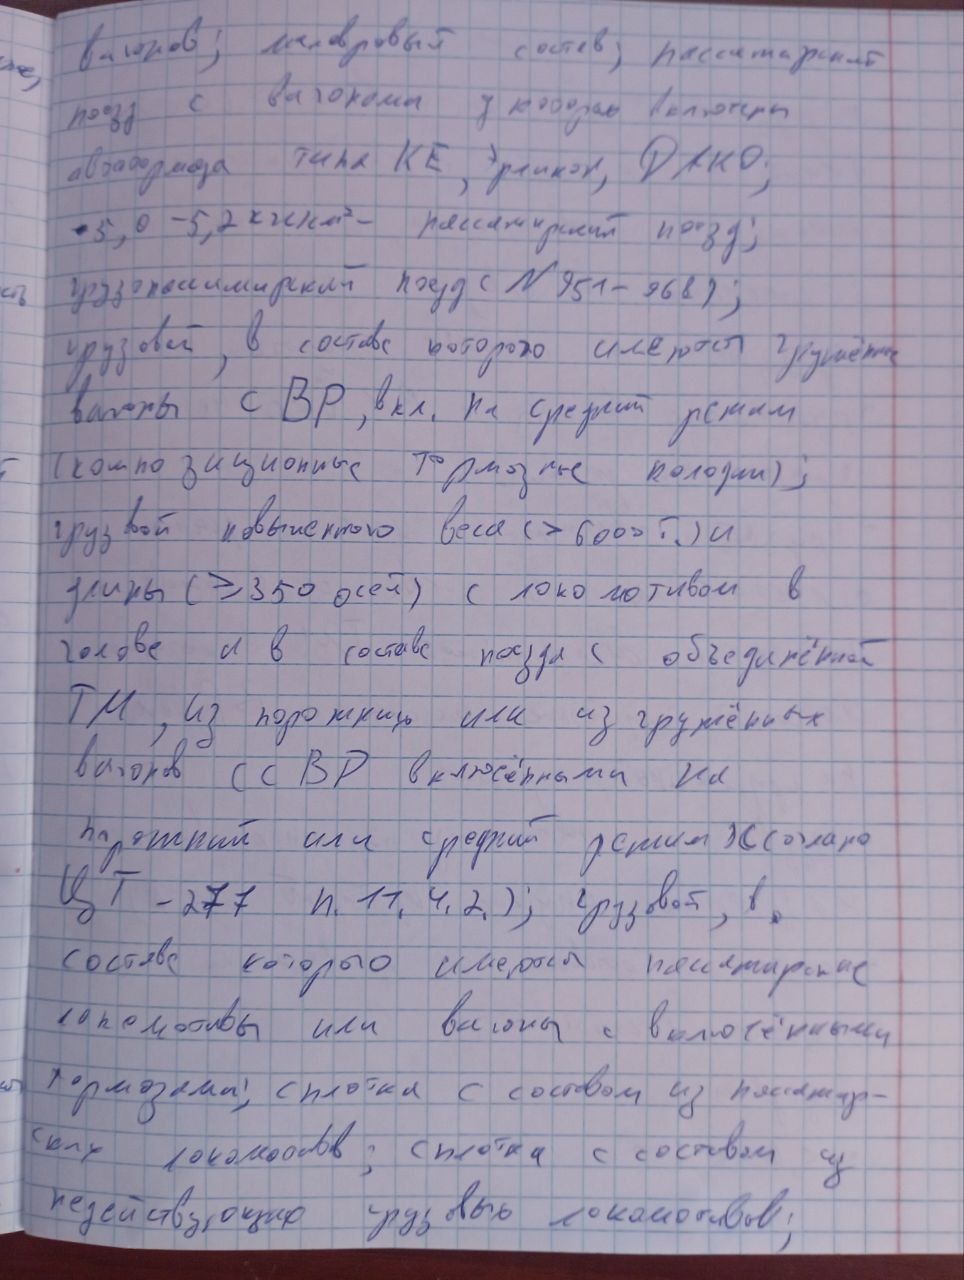 вагонов; маневровый состав; пассажирский
поезд с вагонами у которых включены
автотормоза типа КЕ, Эрликон, ДАКО;
•5,0-5,2 кгс/см² - пассажирский поезд;
грузопассажирский поезд (N 951-968);
грузовой, в составе которого имеются гружёные
вагоны с ВР, вкл. на средний режим
(композиционные тормозные колодки);
грузвой повышенного веса (>6000 т.) и
длины (≥350 осей) с локомотивом в
голове и в составе поезда с объединённой
ТМ, из порожних или из гружённых
вагонов (с ВР включёнными на
порожний или средний режим) (согласно
ЦТ-277 п. 11.4.2.); грузовой, в
составе которого имеются пассажирские
локомотивы или вагоны с включёнными
тормозами; сплотка с составом из пассажир-
ских локомотивов; сплотка с составом из
недействующих грузовых локомотивов;